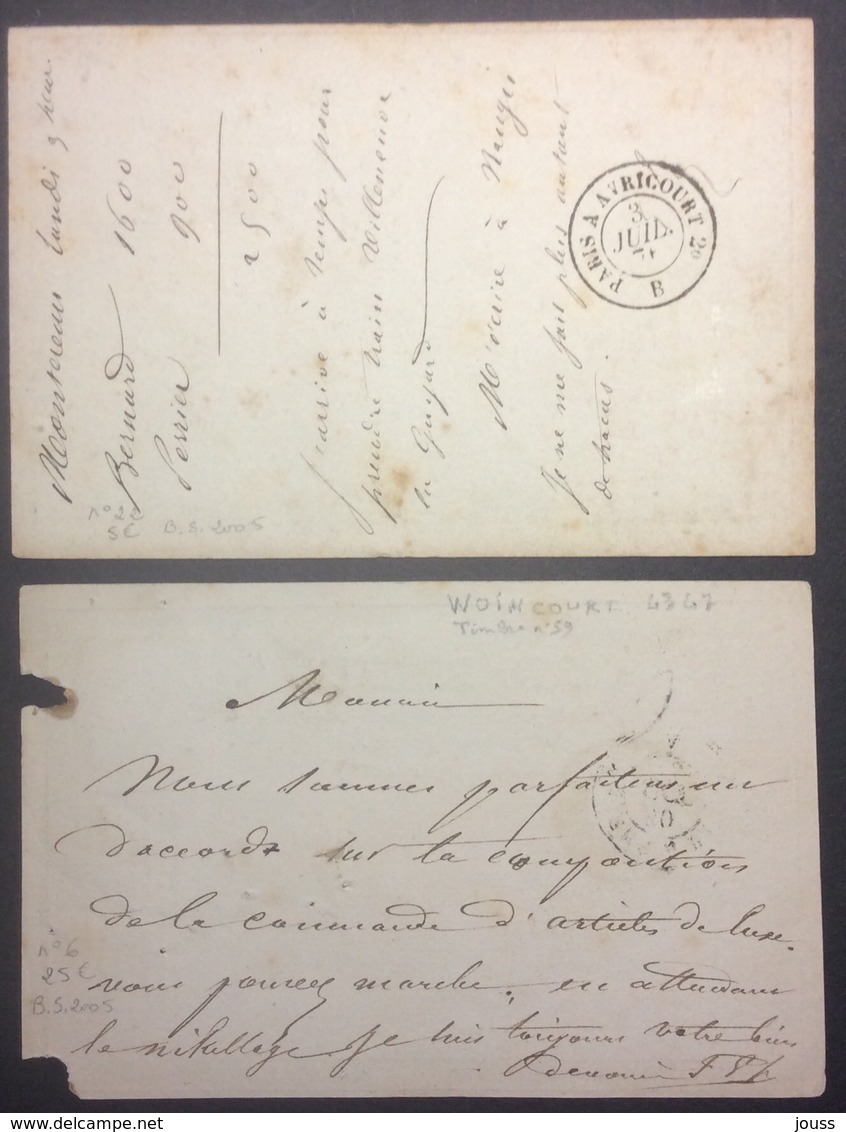 Montereau lundi 9 heur.
Bernard 1600
Perrier 900
2500
J'arrive à temps pour
prendre train Villeneuve
la Guyard
M'écrire à Nangis
Je ne me fais plus autant
de tracas.
PARIS A AVRICOURT 2º
3
JUIL.
B
5€ B.S. 2005
WOINCOURT 4347
Timbre nº 59
Monsieur
Nous sommes parfaitement
d'accord sur la composition
de la commande d'articles de luxe.
vous pouvez marcher, en attendant
le nikellage Je suis toujours votre bien
nº 6
25€
B.S. 2005
delcampe.net
jouss